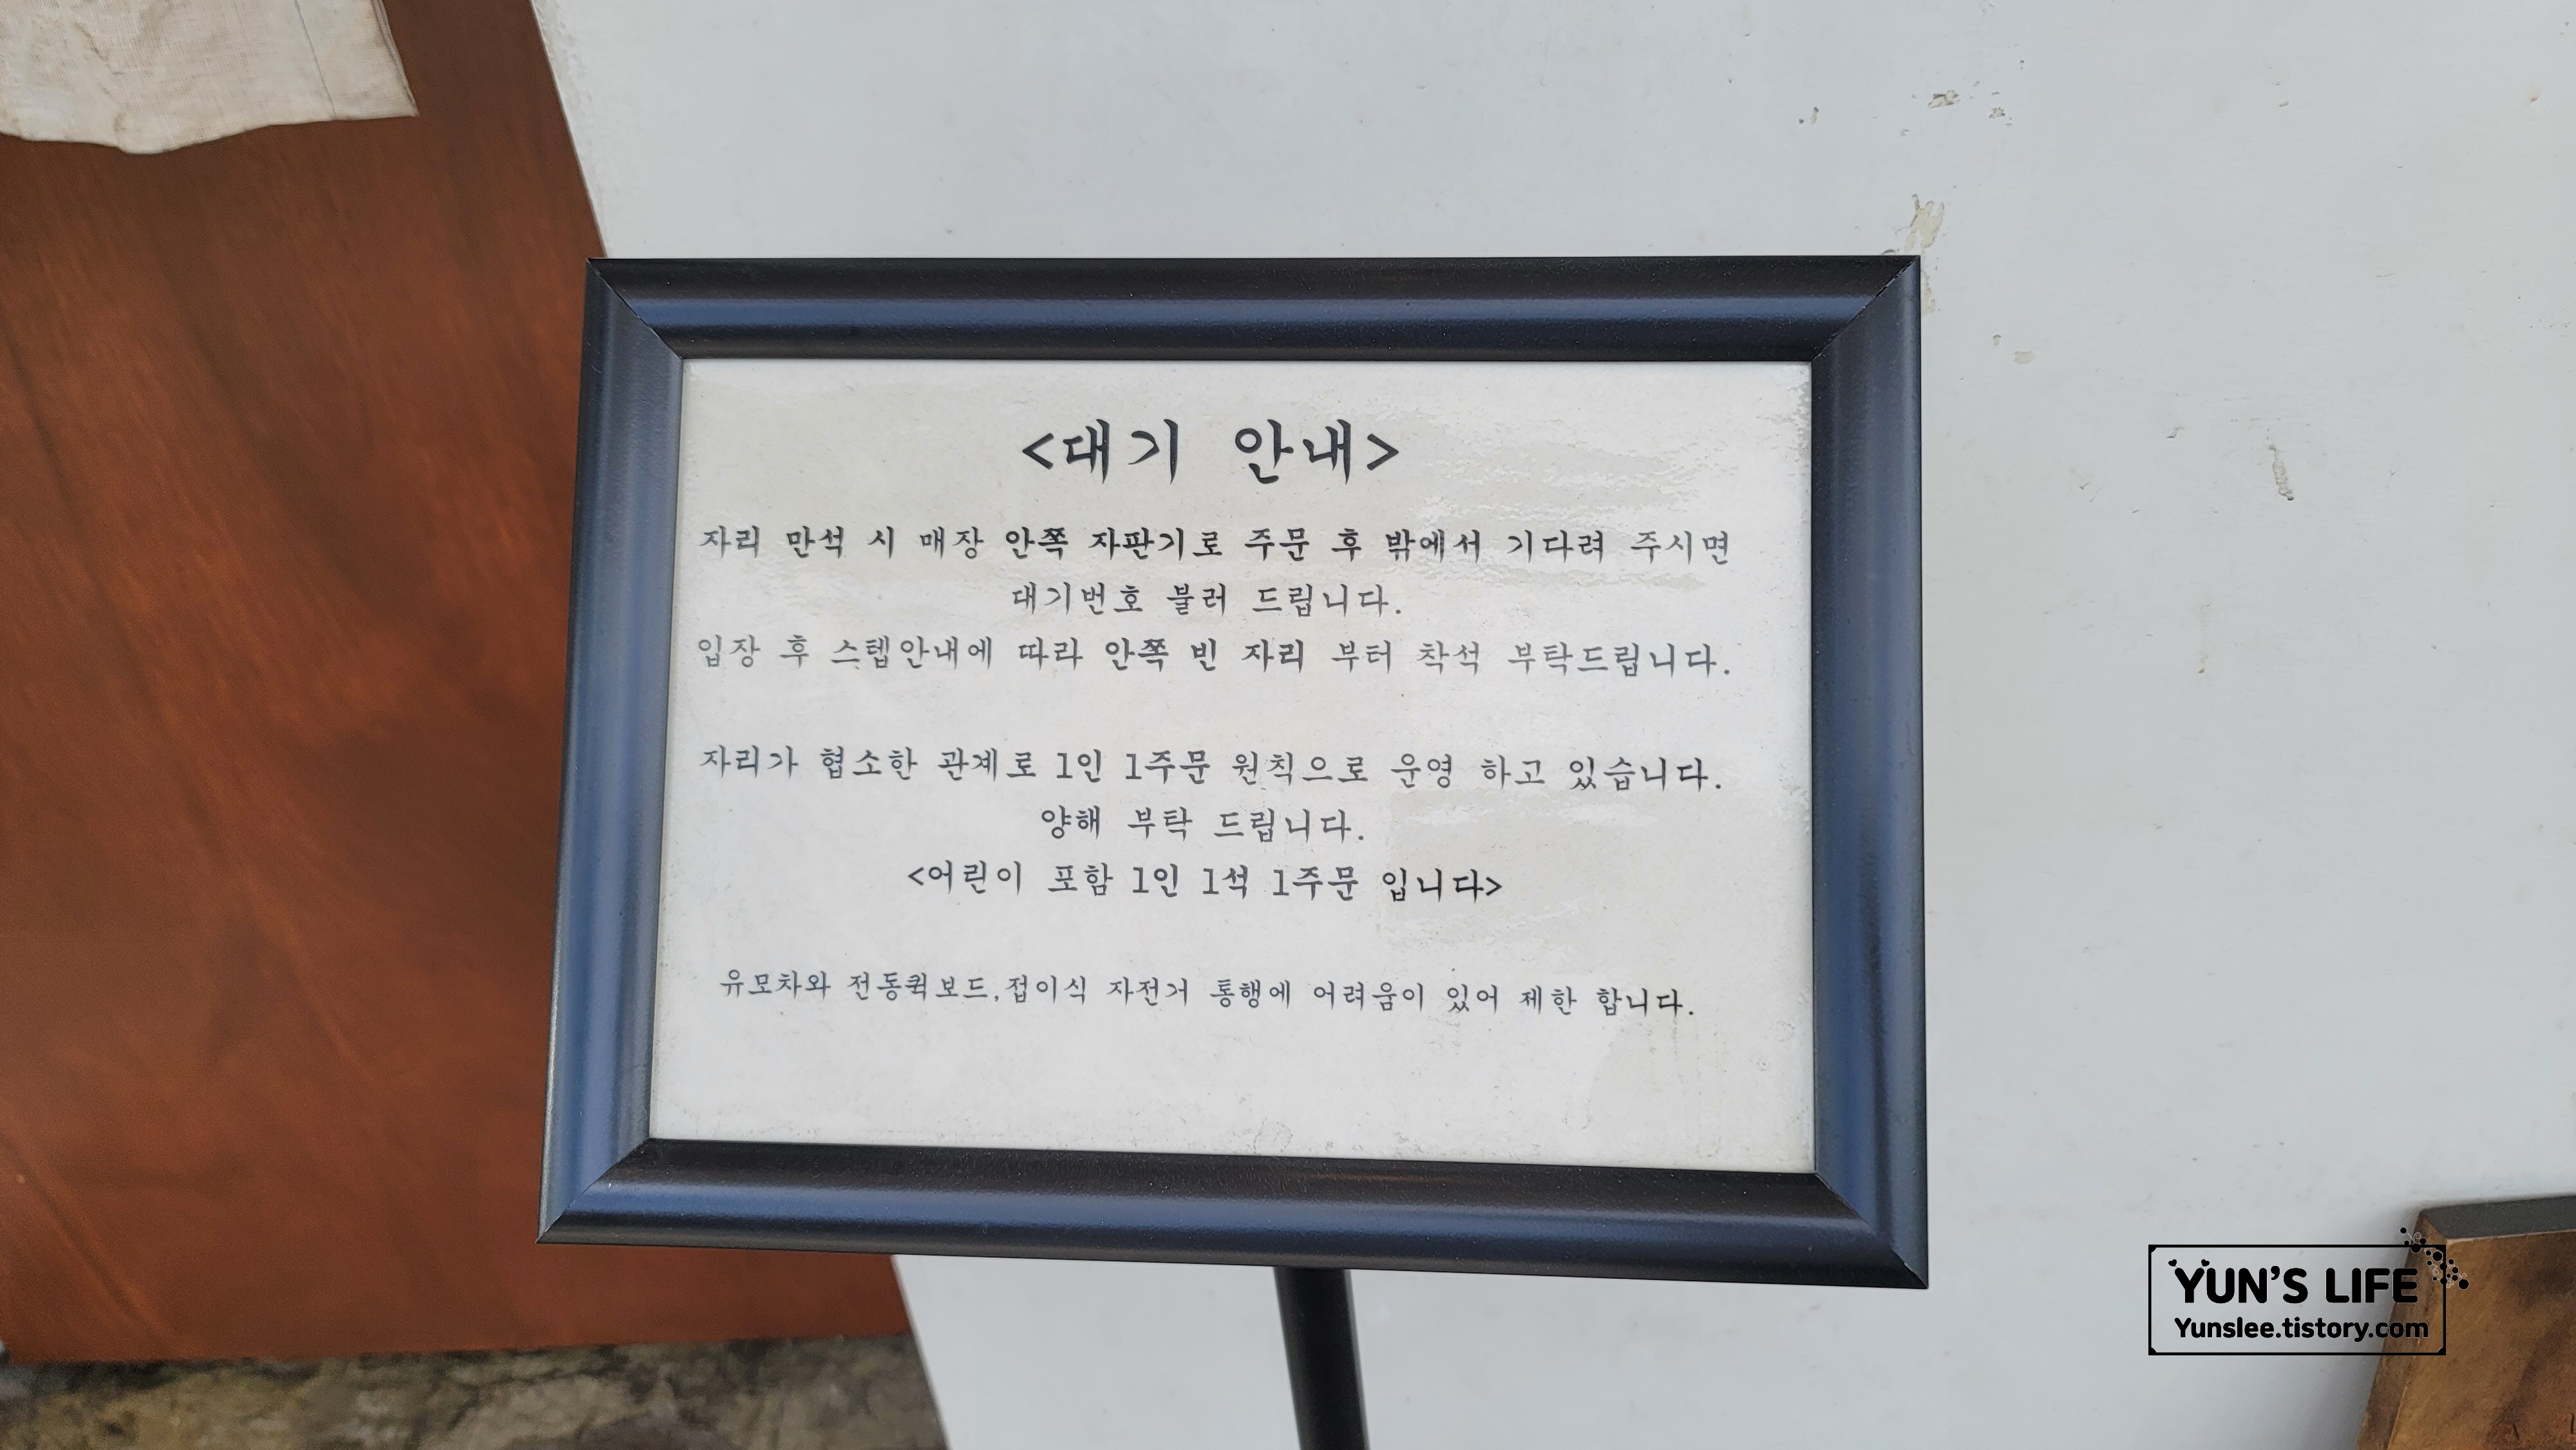 <대기 안내>
자리 만석 시 매장 안쪽 자판기로 주문 후 밖에서 기다려 주시면
대기번호 불러 드립니다.
입장 후 스텝안내에 따라 안쪽 빈 자리 부터 착석 부탁드립니다.
자리가 협소한 관계로 1인 1주문 원칙으로 운영 하고 있습니다.
양해 부탁 드립니다.
<어린이 포함 1인 1석 1주문 입니다>
유모차와 전동퀵보드,접이식 자전거 통행에 어려움이 있어 제한 합니다.
YUN'S LIFE
Yunslee.tistory.com